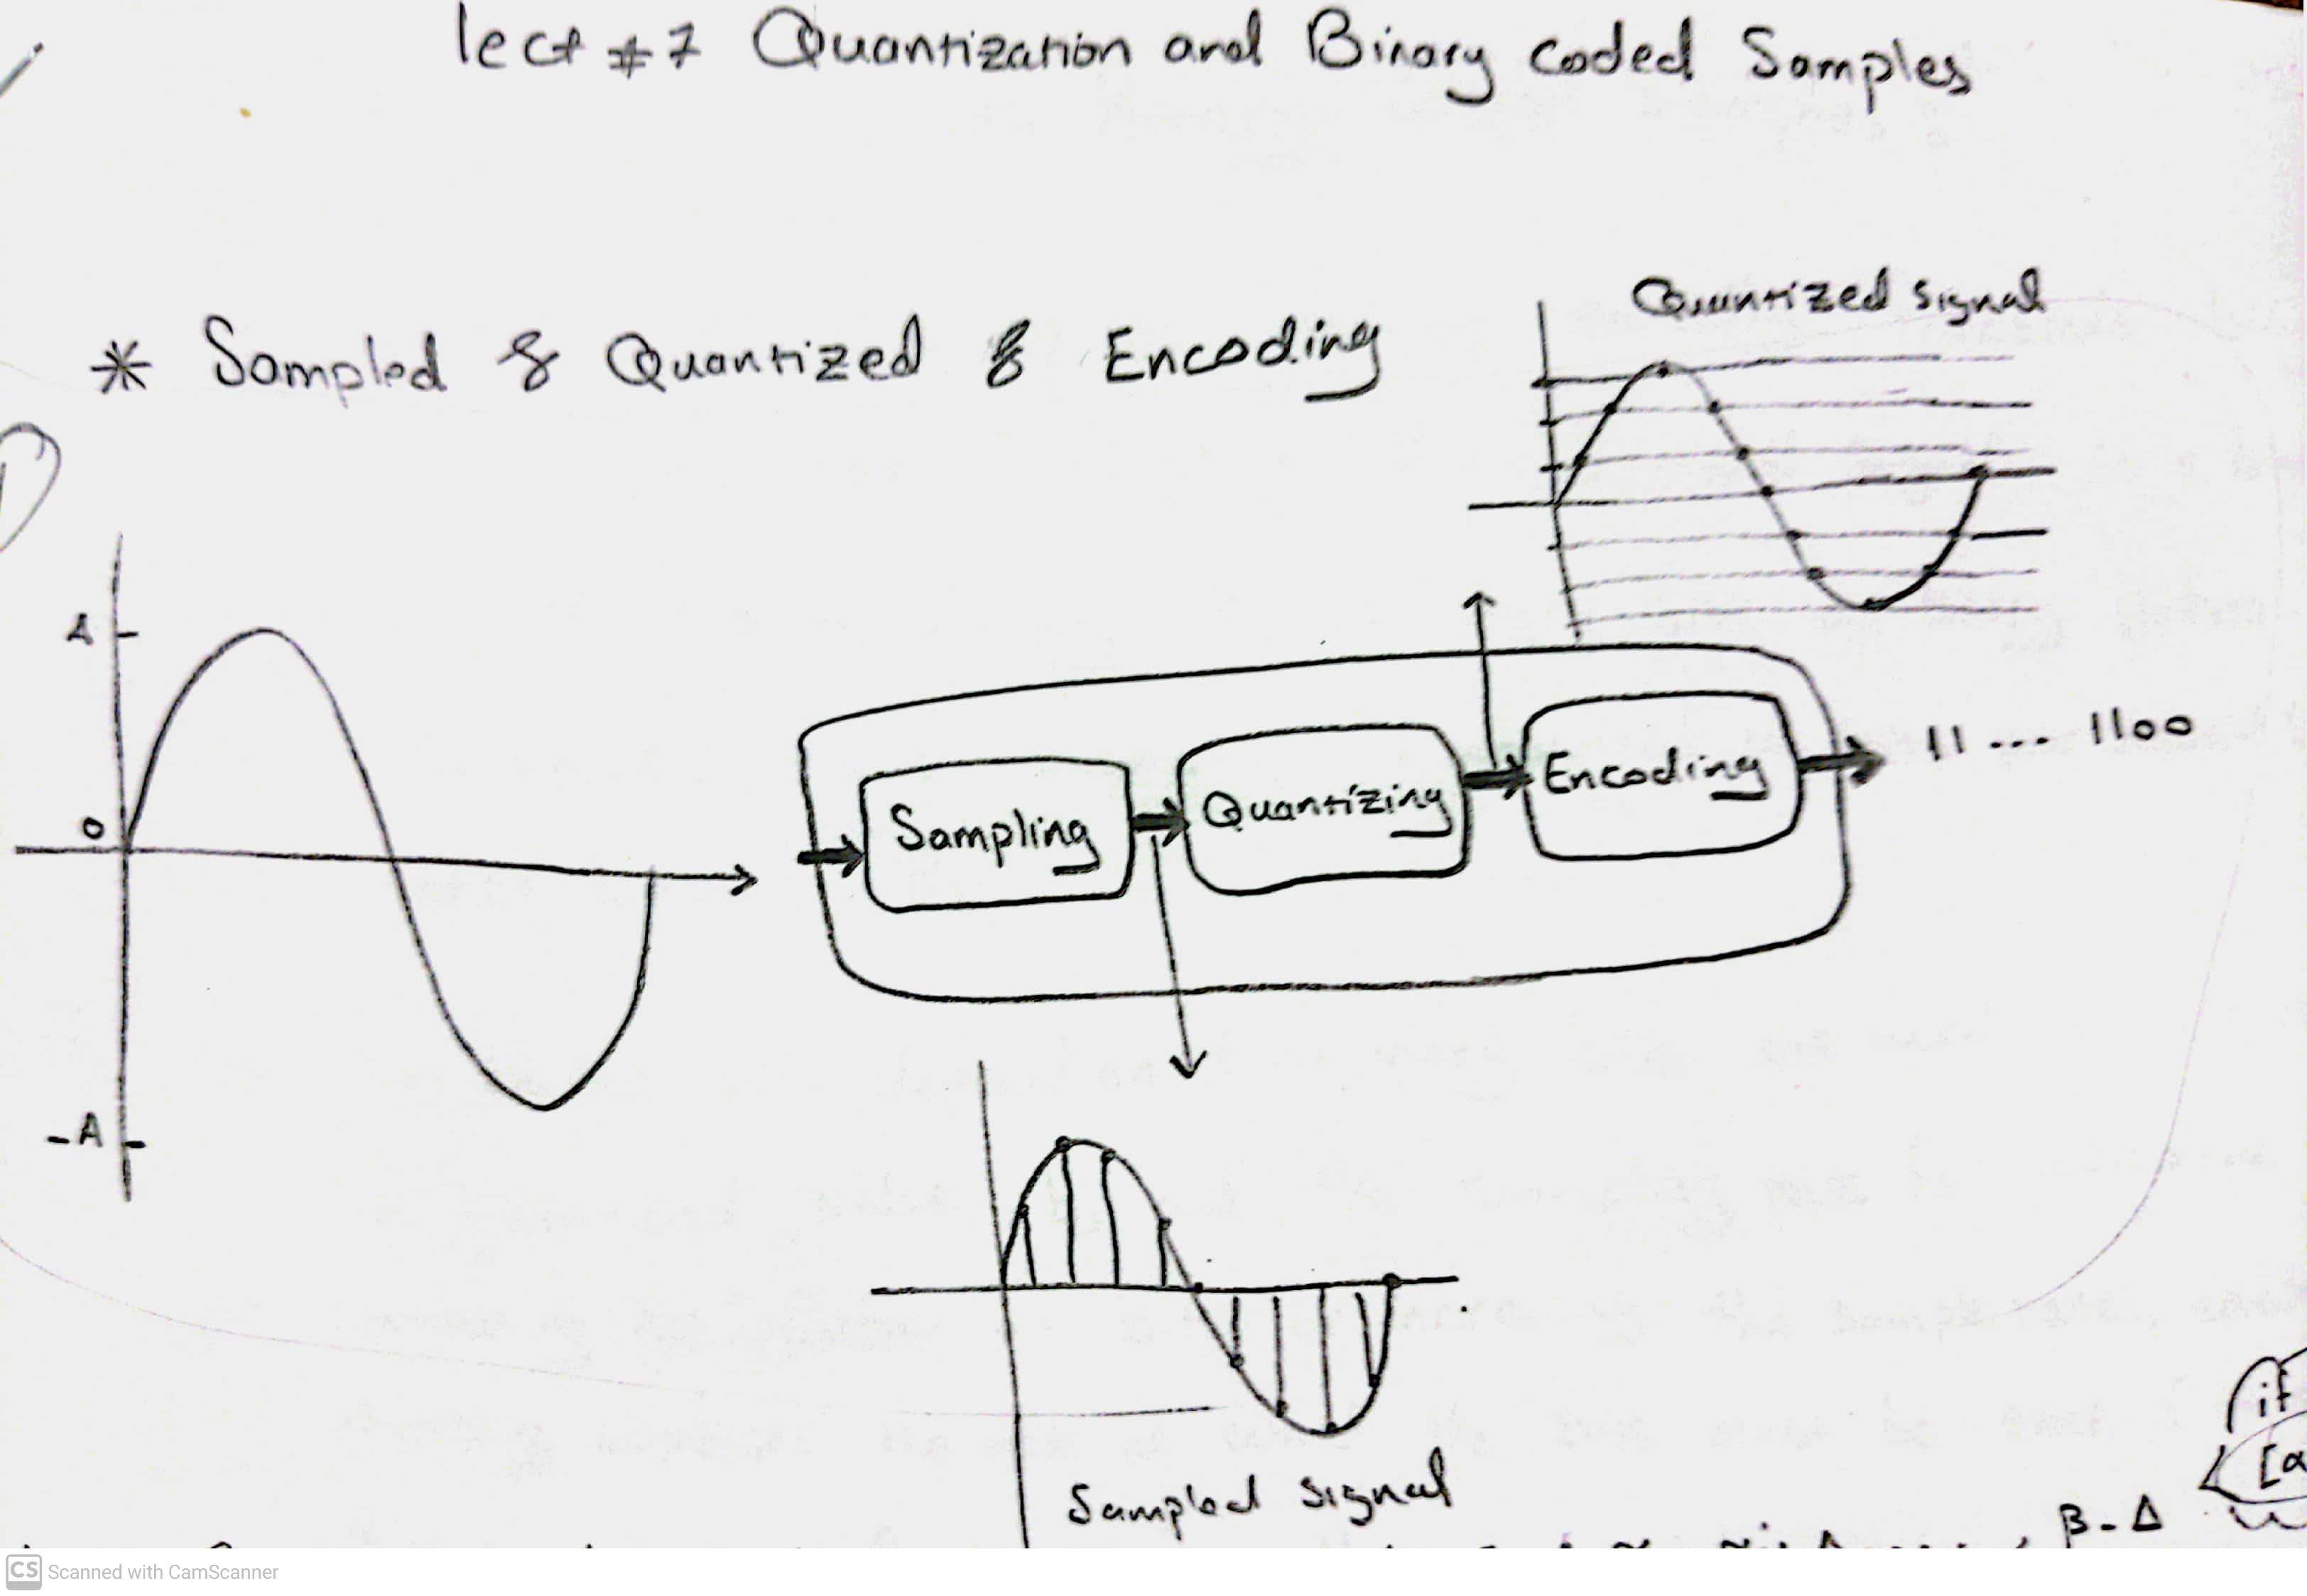 lect #7 Quantization and Binary coded Samples
Quantized signal
* Sampled & Quantized & Encoding
A
0
-A
Sampling
Quantizing
Encoding
11 ... 1100
Sampled signal
if
[a
B-Δ
CS Scanned with CamScanner